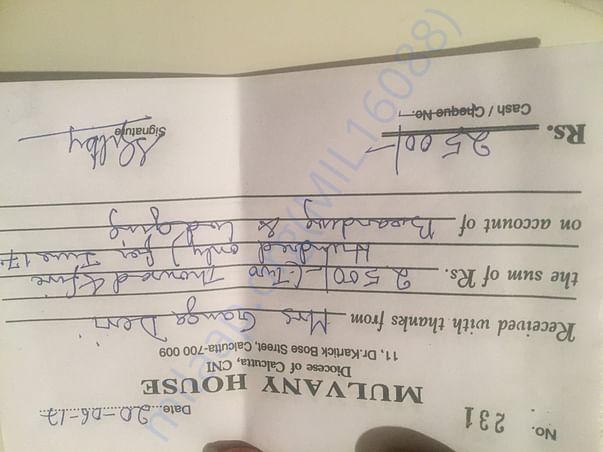 No. 231
Date 20-06-17
MULVANY HOUSE
Diocese of Calcutta, CNI
11, Dr.Kartick Bose Street, Calcutta-700 009
Received with thanks from Mrs Ganga Devi
the sum of Rs. 2500/- (Two Thousand & five
Hundred only) for June 17.
on account of Boarding & Lodging
Rs. 2500/-
Cash / Cheque No.
Signature
(MIL16088)